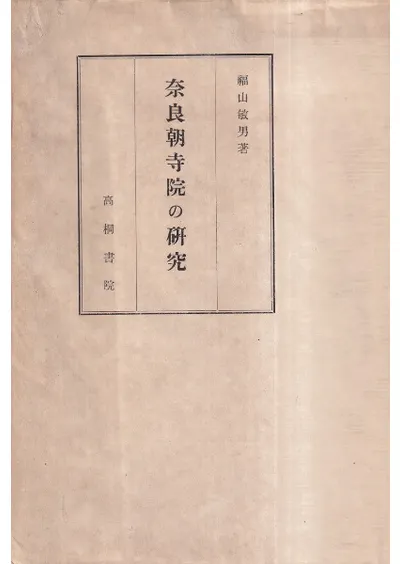 福山敏男著
奈良朝寺院の硏究
高桐書院